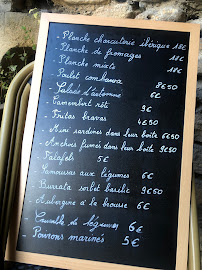 - Planche charcuterie ibérique 18€
- Planche de fromages 18€
- Planche mixte 18€
- Poulet combawa 8€50
- Salade d'automne 6€
- Camembert rôti 9€
- Frites braves 4€50
- Mini sardines dans leur boîte 6€50
- Anchois fumés dans leur boîte 9€50
- Falafels 5€
- Samoussas aux légumes 6€
- Burrata sorbet basilic 9€50
- Aubergine à la brousse 6€
- Crumble de légumes 6€
- Poivrons marinés 5€